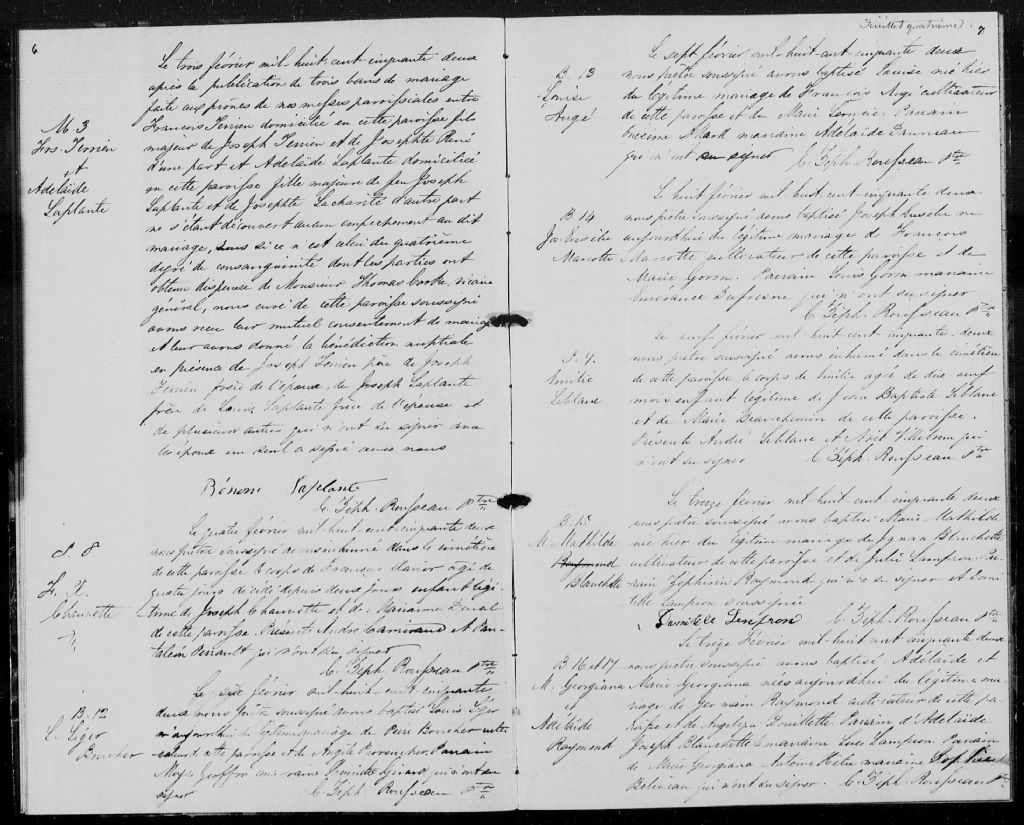 6
Le trois février mil-huit-cent-cinquante deux
après la publication de trois bans de mariage
faite aux prônes de nos messes paroissiales entre
M. 3
Frs. Terrien
et
Adelaïde
Laplante
François Terrien domicilié en cette paroisse fils
majeur de Joseph Terrien et de Josephte René
d'une part et Adélaïde Laplante domiciliée
en cette paroisse fille majeure de feu Joseph
Laplante et de Josephte Lacharité d'autre part
ne s'étant découvert aucun empêchement au dit
mariage, si ce n'est celui du quatrième
degré de consanguinité dont les parties ont
obtenu dispense de Monsieur Thomas Cooke, vicaire
général, nous curé de cette paroisse soussigné
avons reçu leur mutuel consentement de mariage
et leur avons donné la bénédiction nuptiale
en présence de Joseph Terrien père de Joseph
Terrien frère de l'époux, de Joseph Laplante
frère de Louis Laplante frère de l'épouse et
de plusieurs autres qui n'ont su signer avec
les époux un seul a signé avec nous
Bénoni Laplante
C. Zéph. Rousseau Ptre
S. 8
F. X.
Chaurette
Le quatre février mil-huit-cent-cinquante deux
nous prêtre soussigné avons inhumé dans le cimetière
de cette paroisse le corps de François Xavier agé de
quatre jours décédé depuis deux jours enfant légi-
time de Joseph Chaurette et de Marianne Duval
de cette paroisse. Présents André Camirand et Pan-
taléon qui n'ont su signer
C. Zéph. Rousseau Ptre
B. 12
L. Léger
Boucher
Le six février mil-huit-cent cinquante
deux nous prêtre soussigné avons baptisé Louis Léger
né aujourd'hui du légitime mariage de Pierre Boucher culti-
vateur de cette paroisse et de Angèle Parrain
Moyse Geoffroi marraine Girard qui n'ont su
signer C. Zéph. Rousseau Ptre
Feuillet quatrième. 7
B. 13
Louise
Augé
Le sept février mil-huit-cent-cinquante deux
nous prêtre soussigné avons baptisé Louise née hier
du légitime mariage de François Augé cultivateur
de cette paroisse et de Marie Parrain
Adard marraine Adelaïde
qui n'ont su signer C. Zéph. Rousseau Ptre
B. 14
Jos Eusèbe
Marcotte
Le huit février mil huit cent cinquante deux
nous prêtre soussigné avons baptisé Joseph Eusèbe né
aujourd'hui du légitime mariage de François
Marcotte cultivateur de cette paroisse et de
Marie Parrain Louis marraine
Emerance Dufresne qui n'ont su signer
C. Zéph. Rousseau Ptre
S. 9.
Emilie
Leblanc
Le neuf février mil huit cent cinquante-deux
nous prêtre soussigné avons inhumé dans le cimetière
de cette paroisse le corps de Emilie agée de dix-neuf
mois enfant légitime de Jean Baptiste Leblanc
et de Marie Beauchemin de cette paroisse.
Présents André Leblanc et Noël qui
n'ont su signer C. Zéph. Rousseau Ptre
B. 15
M. Mathilde
Raymond
Blanchette
Le treize février mil huit cent cinquante deux
nous prêtre soussigné avons baptisé Marie Mathilde
née hier du légitime mariage de Blanchette
cultivateur de cette paroisse et de Julie Lampron Par-
rain Zéphirin Raymond qui n'a su signer et Domi-
tille Lampron soussignée
Domitille Lenpron C. Zéph. Rousseau Ptre
B 16 et 17
M. Georgiana
et
Adélaïde
Raymond
Le treize février mil-huit cent cinquante deux
nous prêtre soussigné avons baptisé Adélaïde et
Marie Georgiana nées aujourd'hui du légitime ma-
riage de Germain Raymond cultivateur de cette pa-
roisse et de Angélique Parrain d'Adélaïde
Joseph Blanchette marraine Luce Lampron Parrain
de Marie Georgiana Antoine marraine Sophie
Béliveau qui n'ont su signer. C. Zéph. Rousseau Ptre